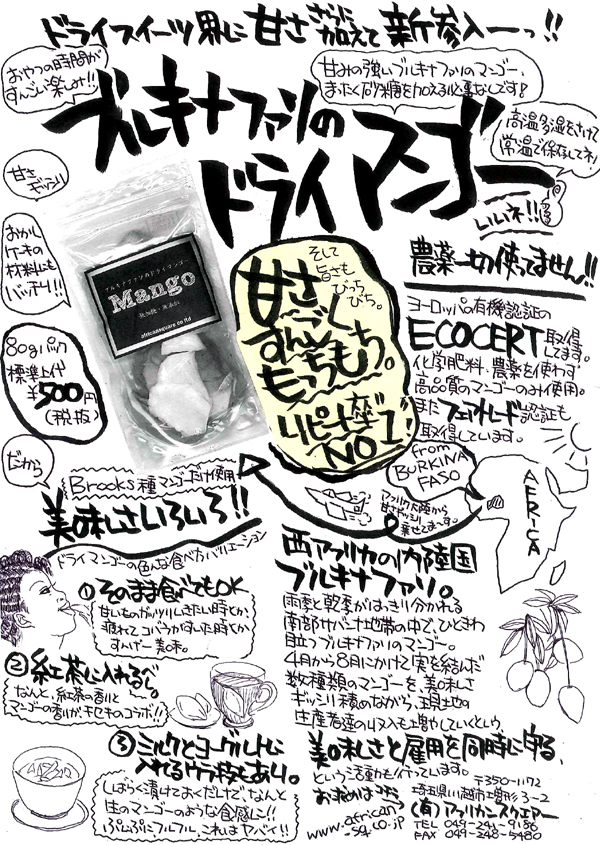 ドライスイーツ界に甘ささらに加えて新参入ーっ!!
おやつの時間が
すんごい楽しみ!!
甘みの強いブルキナファソのマンゴー、
まったく砂糖を加える必要なしです!
ブルキナファソの
ドライマンゴー
高温多湿をさけて
常温で保存してネ!
いいネ!!
甘さ
ギッシリ
おかし
ケーキの
材料にも
バッチリ!!!
80gパック
標準上代
¥500円
(税抜)
だから
ブルキナファソのドライマンゴー
Mango
砂糖・無添加
africansquare.co.ltd
そして
旨さも
ぴっち
ぴち。
甘さ
すんごく
もっちもち。
リピート度
NO1!
農薬一切使ってません!!
ヨーロッパの有機認証の
ECOCERT取得
してます。
化学肥料、農薬を使わず
高品質のマンゴーのみ使用。
また フェアトレード認証も
取得しています。
from
BURKINA
FASO
AFRICA
アフリカ大陸から
甘さギッシリ
乗せてまーす。
Brooks種マンゴーだけ使用
美味しさいろいろ!!
ドライマンゴーの色んな食べ方バリエーション
①そのまま食べてもOK
甘いものガッツリいきたい時とか、
疲れてコバラがすいた時とか
すんげー美味。
②紅茶に入れるべし。
なんと、紅茶の香りと
マンゴーの香りがキセキのコラボ!!
③ミルクとヨーグルトに
入れるウラ技もあり。
しばらく漬けておくだけで、なんと
生のマンゴーのような食感に!!
ぷにぷにフルフル、これはヤバイ!!
西アフリカの内陸国
ブルキナファソ。
雨季と乾季がはっきり分かれる
南部サバンナ地帯の中で、ひときわ
目立つブルキナファソのマンゴー。
4月から8月にかけて実を結んだ
数種類のマンゴーを、美味しさ
ギッシリ積めながら、現地の
生産者達の収入も増やしていくという
美味しさと雇用を同時に守る、
という活動も行っています。
お求めはコチラ
www.african
-sq.co.jp
〒350-1172
埼玉県川越市増形3-2
(有)アフリカンスクエアー
TEL 049-241-9186
FAX 049-248-5480